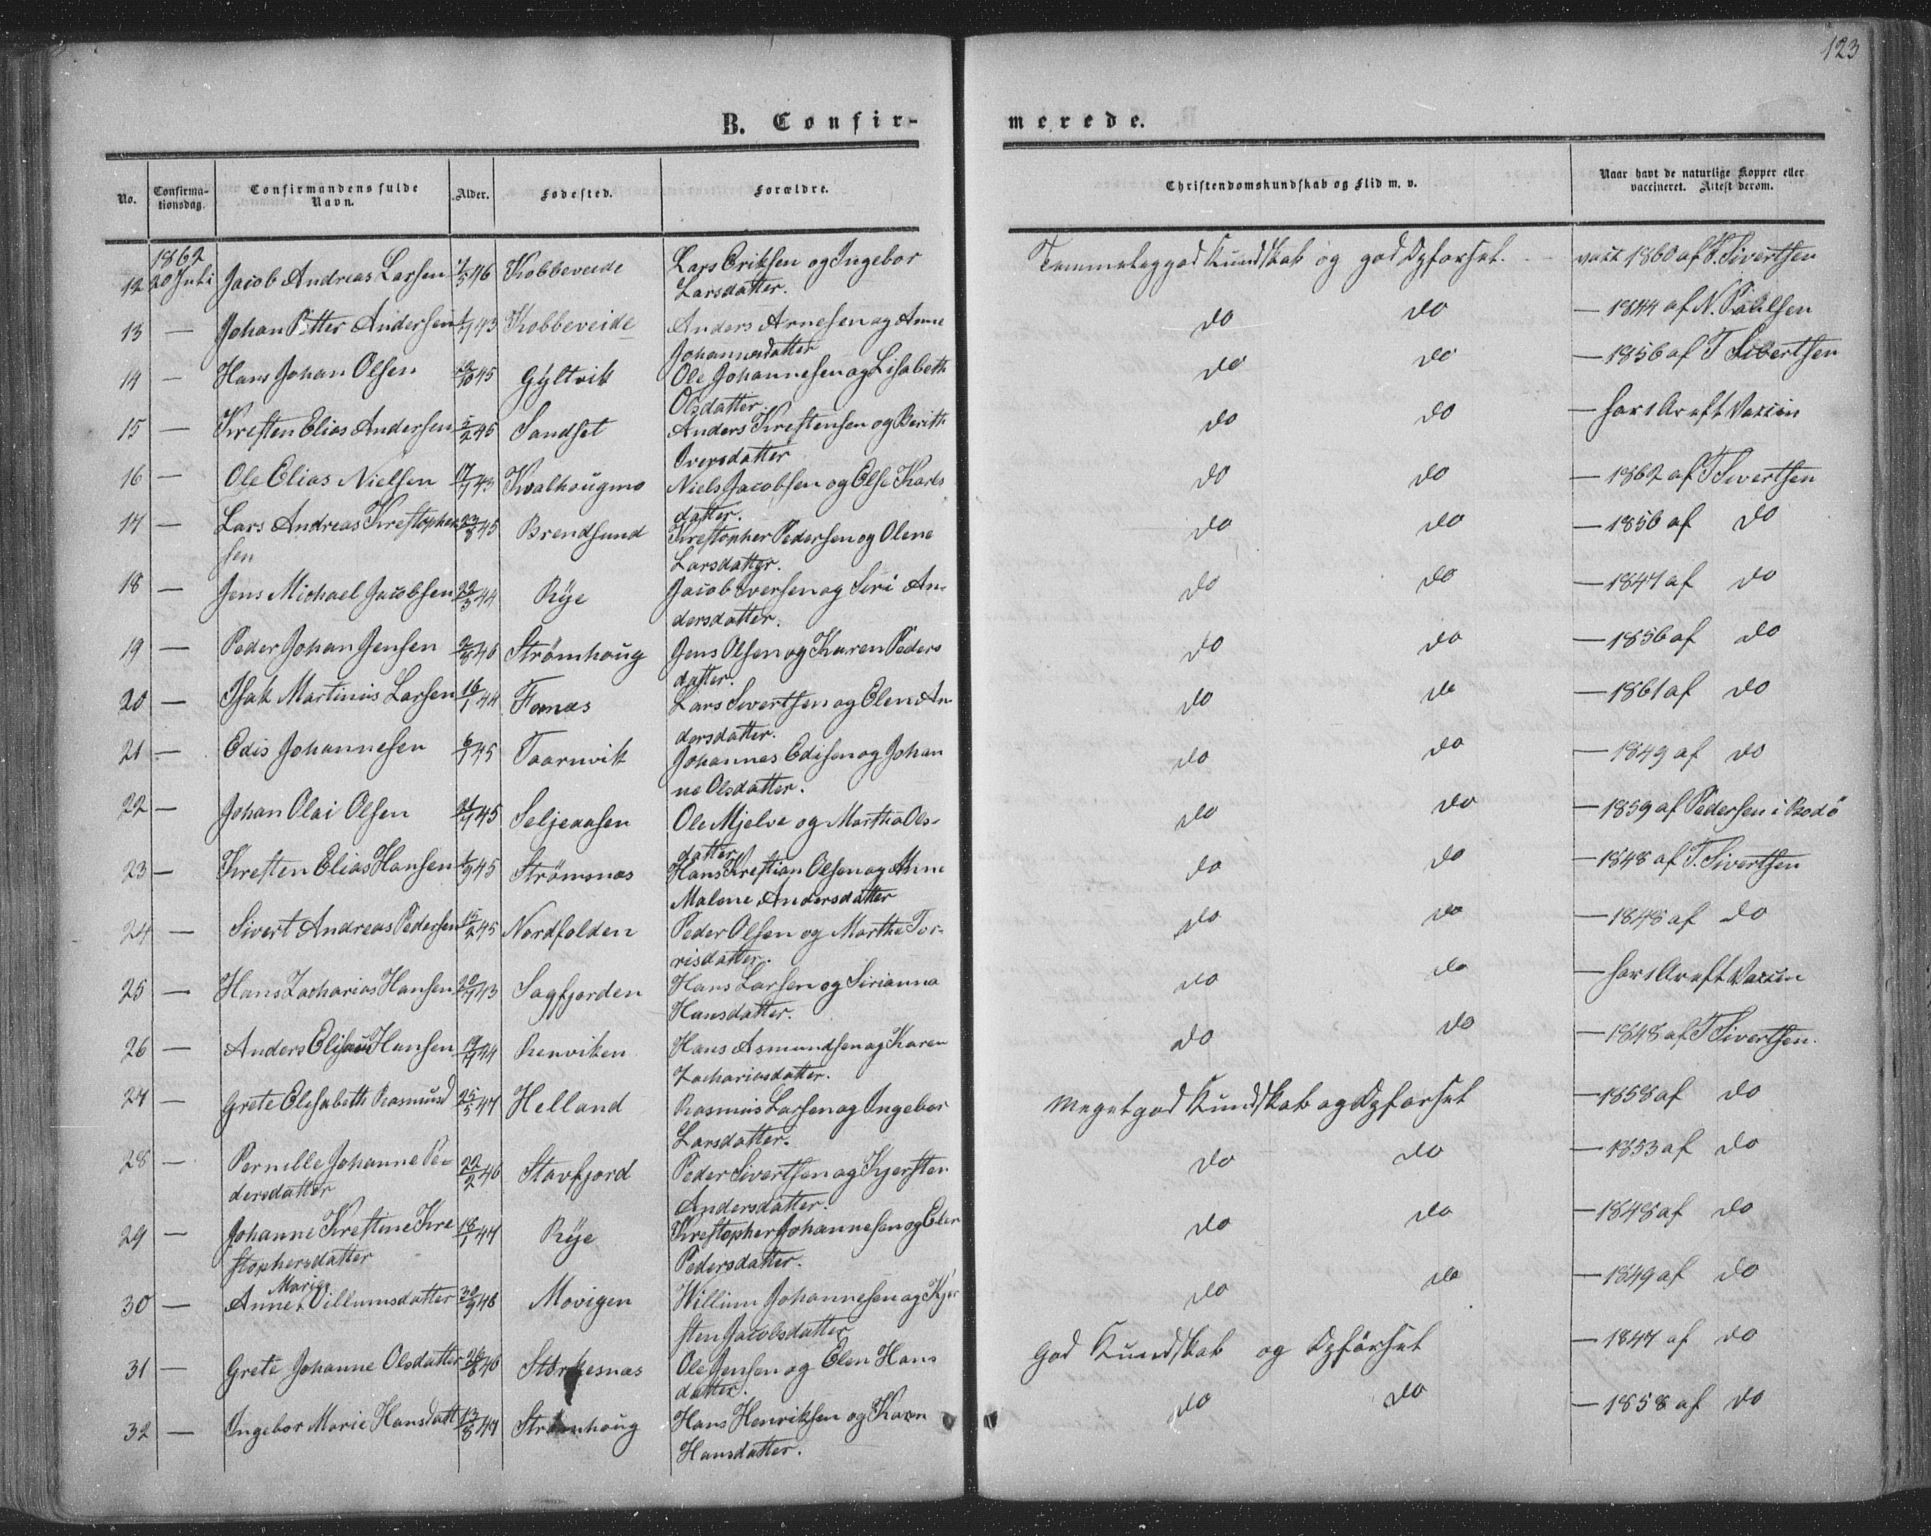 123
B. Confir-
merede.
No.
Confirma-
tionsdag.
Confirmandens fulde
Navn.
Alder.
Fødested.
Forældre.
Christendomskundskab og Flid m. v.
Naar havt de naturlige Kopper eller
vaccineret. Attest derom.
1862
12 20 Juli Jacob Andreas Larsen 46 Kobbeveide Lars Eriksen og Ingebor Temmeleg god Kundskab og god Opforsel. vacc 1860 af T. Sivertsen
Larsdatter.
13 — Johan Petter Andersen 43 Kobbeveide Anders Arnesen og Anne do do — 1844 af N. Paulsen
Johannesdatter
14 — Hans Johan Olsen 45 Gyltvik Ole Johannesen og Lisabeth do do — 1856 af T Sivertsen
Olsdatter.
15 — Kresten Elias Andersen 5/2 45 Sandset Anders Krestensen og Berith do do — har 1 Ar aft Vaccin
Iversdatter
16 — Ole Elias Nielsen 17/1 43 Kvalhougmo Niels Jacobsen og Else Karls do do — 1862 af T Sivertsen
datter.
17 — Lars Andreas Krestopher 45 Brendsund Krestopher Pedersen og Olene do do — 1856 af do
sen Larsdatter.
18 — Jens Michael Jacobsen 44 Røe Jacob Iversen og Siri An- do do — 1847 af do
dersdatter.
19 — Peder Johan Jensen 46 Strømhoug Jens Olsen og Karen Peders do do — 1856 af do
datter.
20 — Isak Martinus Larsen 16/1 44 Fornæs Lars Sivertsen og Elen An do do — 1861 af do
dersdatter.
21 — Edis Johannesen 6/1 45 Taarnvik Johannes Edisen og Johan do do — 1849 af do
ne Olsdatter.
22 — Johan Olai Olsen 45 Seljeaasen Ole Mjelve og Martha Ols- do do — 1859 af Pedersen i Bodö
datter
23 — Kresten Elias Hansen 45 Strømsnæs Hans Krestian Olsen og Anne do do — 1848 af T. Sivertsen
Malene Andersdatter
24 — Sivert Andreas Pedersen 15/2 45 Nordfolden Peder Olsen og Martha Tor- do do — 1848 af do
risdatter.
25 — Hans Zacharias Hansen 43 Sagfjorden Hans Larsen og Sirianna do do — har 1 Ar aft Vaccin
Hansdatter.
26 — Anders Elisæus Hansen 44 Renviken Hans Asmundsen og Karen do do — 1848 af T Sivertsen.
Zachariasdatter.
27 — Grete Elisabeth Rasmusd 25/5 47 Helland Rasmus Larsen og Ingebor Meget god Kundskab og Opforsel — 1858 af do
Larsdatter.
28 — Pernille Johanne Pe- 22/2 46 Stavfjord Peder Sivertsen og Kjersten do do — 1853 af do
dersdatter Andersdatter.
29 — Johanne Krestine Kre 18/1 47 Røe Krestopher Johannesen og Elen do do — 1848 af do
stophersdatter Pedersdatter.
Marie
30 — Anne Villumsdatter 30/9 46 Movigen Willium Johannesen og Kjer do do — 1849 af do
sten Jacobsdatter
31 — Grete Johanne Olsdatter 26/8 46 Storkesnæs Ole Jensen og Elen Hans God Kundskab og Opførsel — 1847 af do
datter.
32 — Ingebor Marie Hansdatt 13/8 47 Strømhoug Hans Henriksen og Karen do do — 1858 af do
Hansdatter.